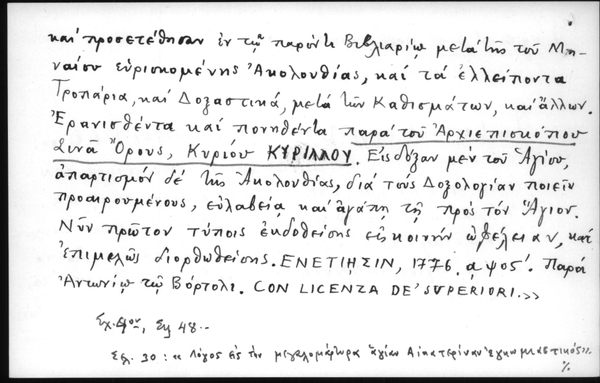 καί προσετέθησαν ἐν τῷ παρόντι Βιβλιαρίῳ μετά τῆς τοῦ Μη-
ναίου εὑρισκομένης Ἀκολουθίας, καί τά ἐλλείποντα
Τροπάρια, καί Δοξαστικά, μετά τῶν Καθισμάτων, καί ἄλλων.
Ἐρανισθέντα καί πονηθέντα παρά τοῦ Ἀρχιεπισκόπου
Σινᾶ Ὄρους, Κυρίου ΚΥΡΙΛΛΟΥ. Εἰς δόξαν μέν τοῦ Ἁγίου,
ἀπαρτισμόν δέ τῆς Ἀκολουθίας, διά τους Δοξολογίαν ποιεῖν
προαιρουμένους, εὐλαβείᾳ καί ἀγάπῃ τῇ πρός τόν Ἅγιον.
Νῦν πρῶτον τύποις ἐκδοθείσης εἰς κοινήν ὠφέλειαν, καί
Ἐπιμελῶς διορθωθείσης. ΕΝΕΤΙΗΣΙΝ, 1776. αψοϛ΄. Παρά
Ἀντωνίῳ τῷ Βόρτολι. CON LICENZA DE' SUPERIORI.>>
Σχ. 8ον, Σελ 48.-
Σελ. 30: « Λόγος εἰς τήν μεγαλομάρτυρα ἁγίαν Αἰκατερίναν ἐγκωμιαστικός».
%